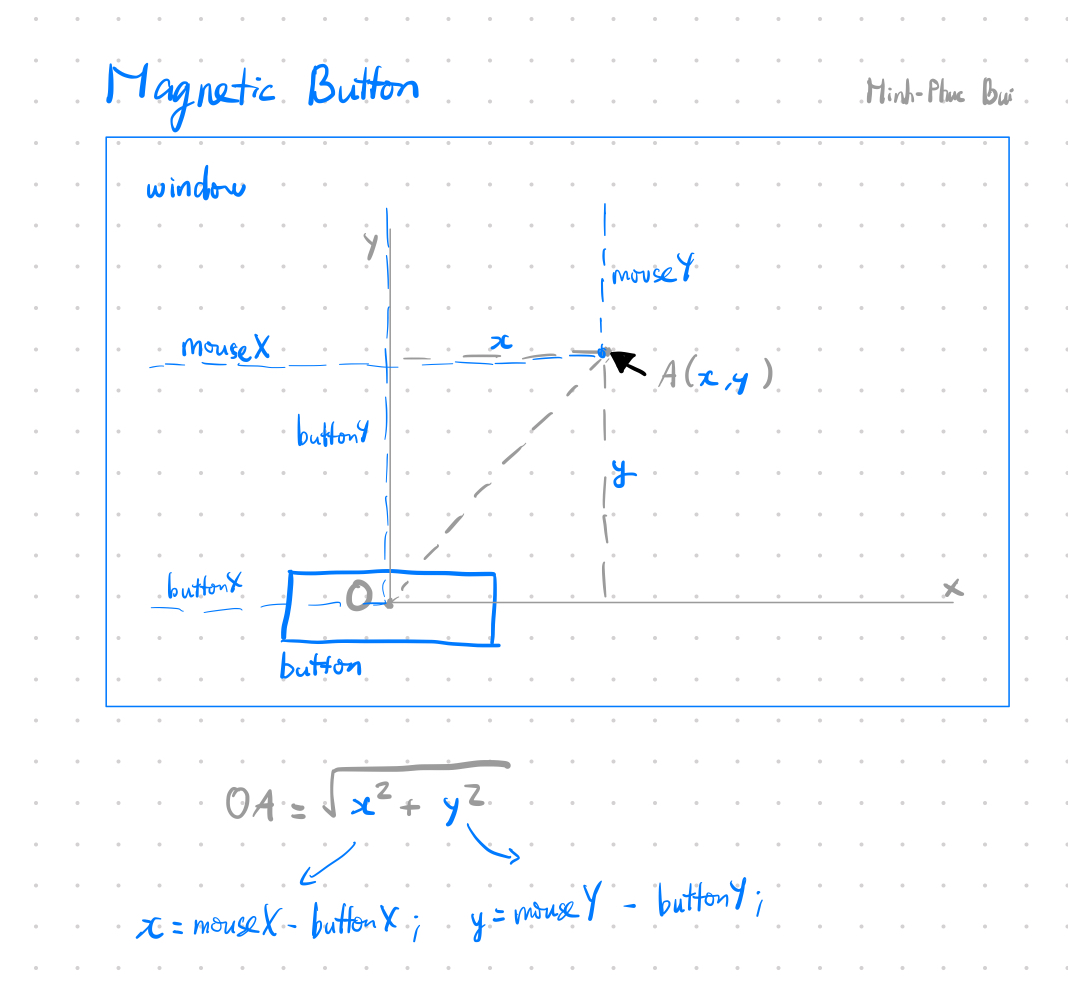 Magnetic Button
Minh-Phuc Bui
window
y
mouseY
mouseX
x
A(x,y)
buttonY
y
buttonX
O
x
button
OA = √x² + y²
x = mouseX - buttonX; y = mouseY - buttonY;